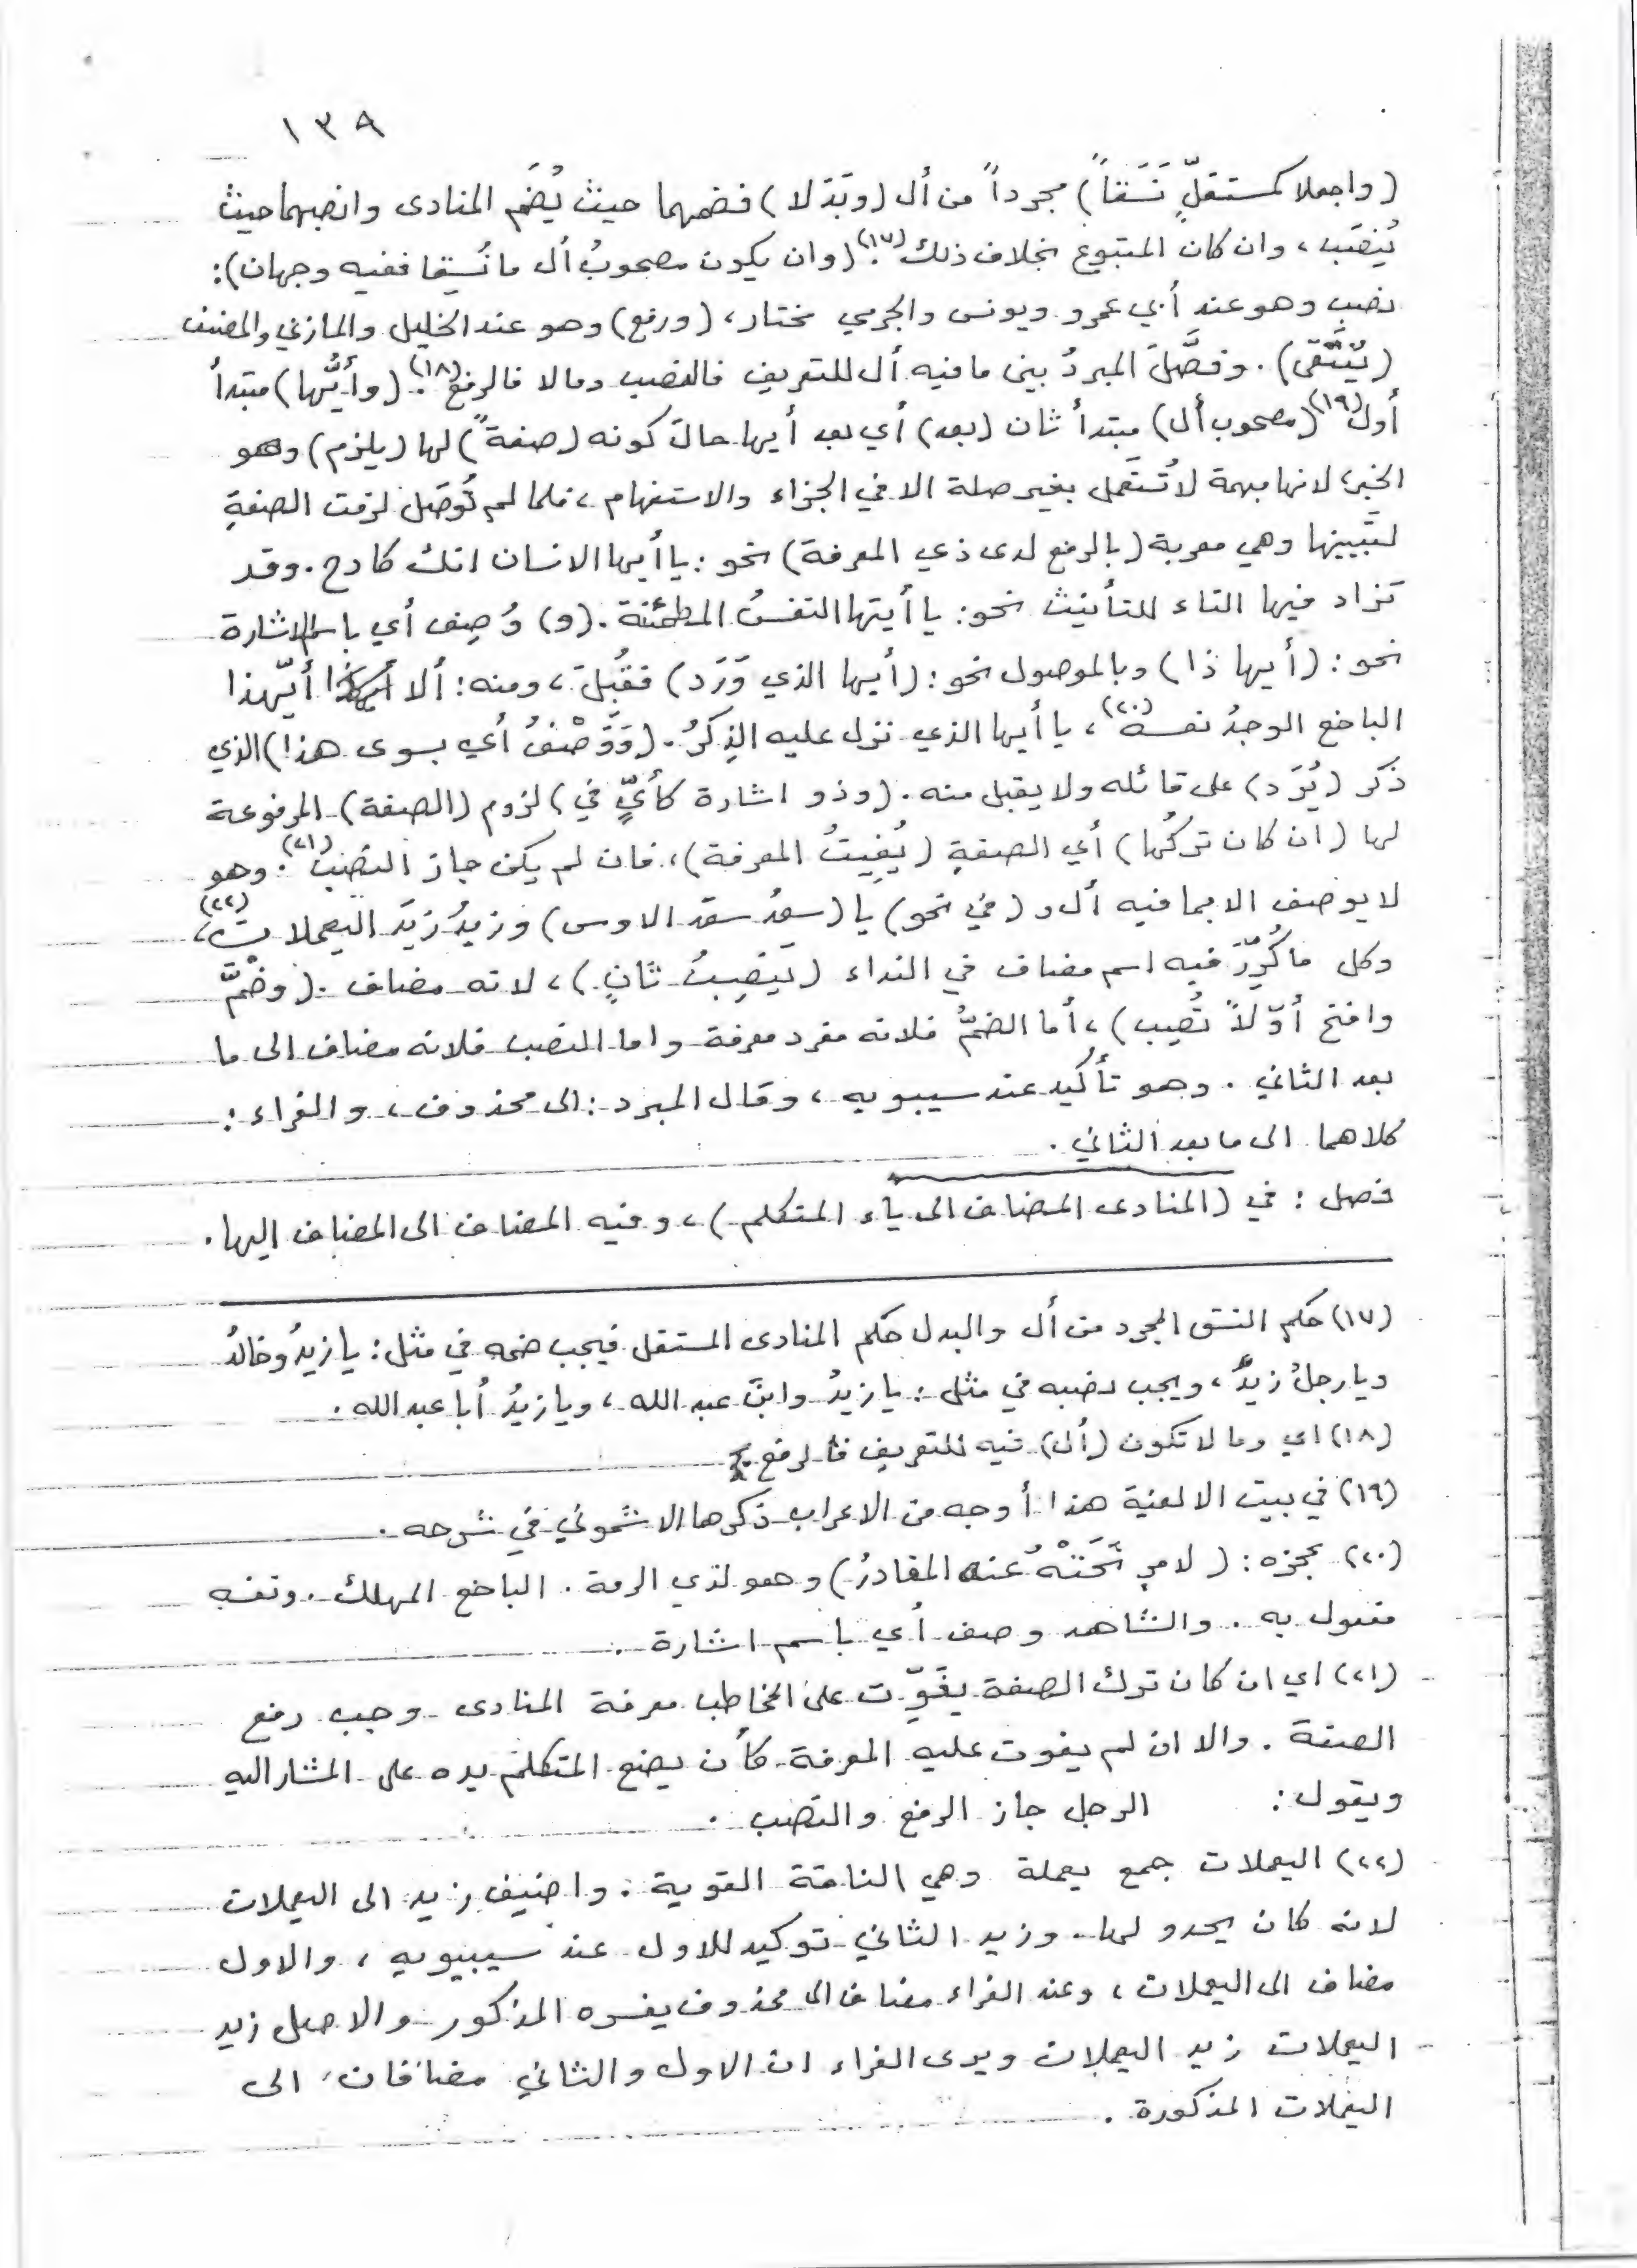 ١٣٩
(واجعلا كمستقلٍّ نَسَقاً) مجرداً من أل (وبَدَلا) فضمهما حيث يُضَم المنادى وانصبهما حيث
يُنصَب، وان كان المتبوع بخلاف ذلك(١٧). (وان يكون مصحوبُ أل ما نُسِقا ففيه وجهان):
نصب وهو عند أبي عمرو ويونس والجرمي مختار، (ورفع) وهو عند الخليل والمازني والمصنف
(يُنْتَقى). وفصَّلَ المبردُ بين ما فيه أل للتعريف فالنصب ومالا فالرفع(١٨). (وأيُّها) مبتدأ
أول(١٩) (مصحوب أل) مبتدأ ثان (بعد) أي بعد أيها حالَ كونه (صفةً) لها (يلزم) وهو
الخبر، لانها مبهمة لا تُستَعمل بغير صلة الا في الجزاء والاستفهام، فلما لم تُوصَل لزمت الصفةِ
لتبيينها وهي معربة (بالرفع لدى ذي المعرفة) نحو: يا أيها الانسان انك كادح. وقد
تزاد فيها التاء للتأنيث نحو: يا أيتها النفسُ المطمئنة. (و) وُصِف أي باسم الاشارة
نحو: (أيها ذا) وبالموصول نحو: (أيها الذي وَرَد) فقُبلَ، ومنه: ألا أيّهذا
الباخع الوجدُ نفسهُ(٢٠)، يا أيها الذي نزل عليه الذِكرُ. (وَوَصْفُ أي بسوى هذا) الذي
ذكر (يُرَد) على قائله ولا يقبل منه. (وذو اشارة كأيٍّ في) لزوم (الصفة) المرفوعة
لها (ان كان تركُها) أي الصفةِ (يُفِيتُ المعرفة)، فان لم يكن جاز النصب(٢١). وهو
لا يوصف الا بما فيه أل و (في نحو) يا (سعدُ سعدَ الاوس) وزيدُ زيدَ اليعملات(٢٢)،
وكل ما كُرِّرَ فيه اسم مضاف في النداء (يَنصِبُ ثانٍ)، لانه مضاف. (وضُمَّ
وافتح أوّلاً تُصِب)، أما الضمُّ فلانه مفرد معرفة واما النصب فلانه مضاف الى ما
بعد الثاني. وهو تأكيد عند سيبويه، وقال المبرد: الى محذوف، والفراء:
كلاهما الى ما بعد الثاني.
فصل: في (المنادى المضاف الى ياء المتكلم)، وفيه المضاف الى المضاف إليها.
(١٧) حكم النسق المجرد من أل والبدل حكم المنادى المستقل فيجب ضمه في مثل: يا زيدُ وخالدُ
ويا رجلُ زيدُ، ويجب نصبه في مثل: يا زيدُ وابنَ عبد الله، ويا زيدُ أبا عبد الله.
(١٨) اي وما لا تكون (أل) فيه للتعريف فالرفع.
(١٩) في بيت الالفية هذا أوجه من الاعراب ذكرها الاشموني في شرحه.
(٢٠) عجزه: (لامرٍ نَحَتْهُ عنه المقادرُ) وهو لذي الرمة. الباخع المهلك. ونفسه
مفعول به. والشاهد وصف أي باسم اشارة.
(٢١) اي ان كان ترك الصفة يفوِّت على المخاطب معرفة المنادى وجب رفع
الصفة. والا ان لم يفوت عليه المعرفة كأن يضع المتكلم يده على المشار اليه
ويقول: الرجل جاز الرفع والنصب.
(٢٢) اليعملات جمع يعملة وهي الناقة القوية. واضيف زيد الى اليعملات
لانه كان يحدو لها. وزيد الثاني توكيد للاول عند سيبيويه، والاول
مضاف الى اليعملات، وعند الفراء مضاف الى محذوف يفسره المذكور والاصل زيد
اليعملات زيد اليعملات ويرى الفراء ان الاول والثاني مضافان الى
اليعملات المذكورة.